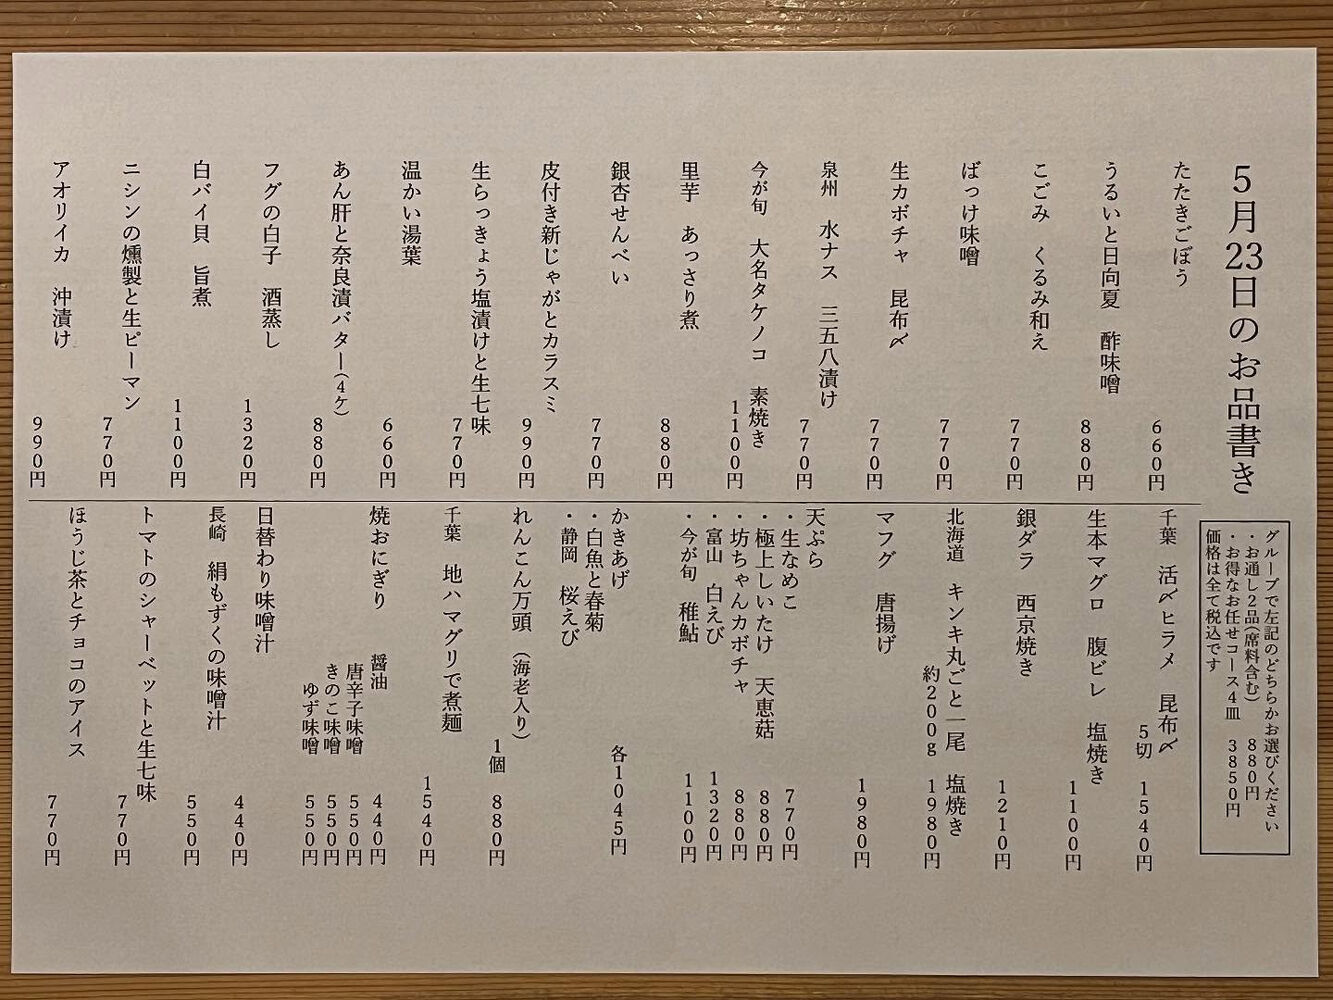 5月23日のお品書き
グループで左記のどちらかお選びください
・お通し2品(席料含む) 880円
・お得なお任せコース4皿 3850円
価格は全て税込です
たたきごぼう
660円
うるいと日向夏 酢味噌
880円
こごみ くるみ和え
770円
ばっけ味噌
770円
生カボチャ 昆布〆
770円
泉州 水ナス 三五八漬け
770円
今が旬 大名タケノコ 素焼き
1100円
里芋 あっさり煮
880円
銀杏せんべい
770円
皮付き新じゃがとカラスミ
990円
生らっきょう塩漬けと生七味
770円
温かい湯葉
660円
あん肝と奈良漬バター(4ケ)
880円
フグの白子 酒蒸し
1320円
白バイ貝 旨煮
1100円
ニシンの燻製と生ピーマン
770円
アオリイカ 沖漬け
990円
千葉 活〆ヒラメ 昆布〆
5切 1540円
生本マグロ 腹ビレ 塩焼き
1100円
銀ダラ 西京焼き
1210円
北海道 キンキ丸ごと一尾 塩焼き
約200g 1980円
マフグ 唐揚げ
1980円
天ぷら
・生なめこ 770円
・極上しいたけ 天恵菇 880円
・坊ちゃんカボチャ 880円
・富山 白えび 1320円
・今が旬 稚鮎 1100円
かきあげ 各1045円
・白魚と春菊
・静岡 桜えび
れんこん万頭(海老入り)
1個 880円
千葉 地ハマグリで煮麺
1540円
焼おにぎり 醤油 440円
唐辛子味噌 550円
きのこ味噌 550円
ゆず味噌 550円
日替わり味噌汁
440円
長崎 絹もずくの味噌汁
550円
トマトのシャーベットと生七味
770円
ほうじ茶とチョコのアイス
770円